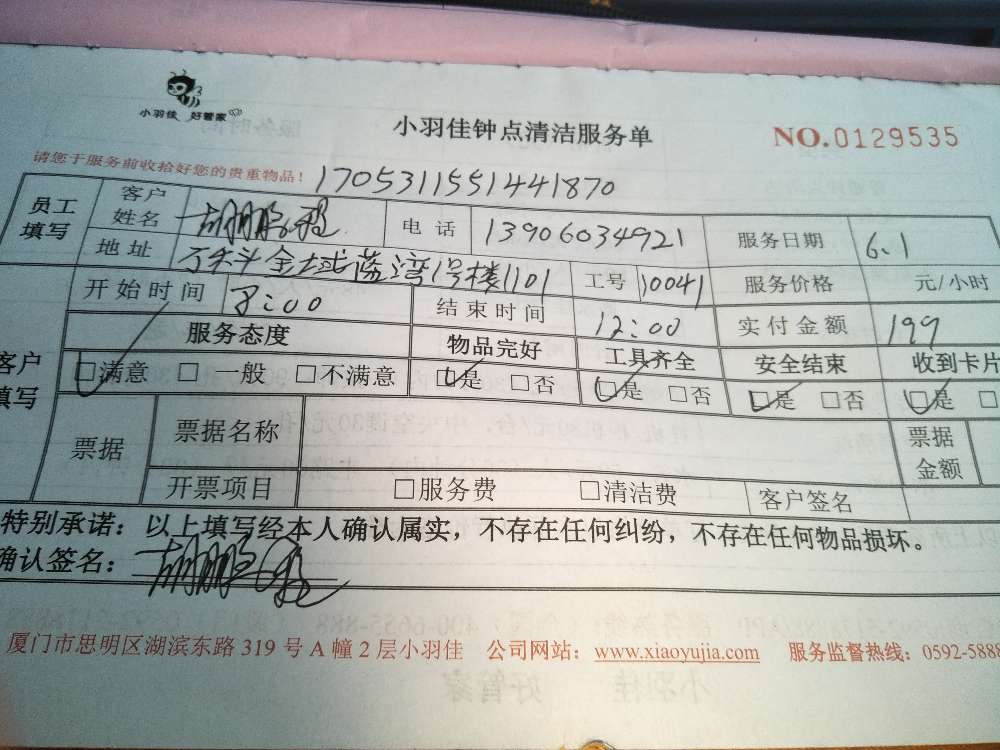 小羽佳 好管家
小羽佳钟点清洁服务单
NO.0129535
请您于服务前收拾好您的贵重物品！ 1705311551441870
员工填写 客户姓名 胡鹏程 电话 13906034921 服务日期 6.1
地址 万科金域蓝湾1号楼1101 工号 10041 服务价格 元/小时
开始时间 8:00 结束时间 12:00 实付金额 199
客户填写 服务态度 物品完好 工具齐全 安全结束 收到卡片
□满意 □一般 □不满意 □是 □否 □是 □否 □是 □否 □是 □
票据 票据名称 票据金额
开票项目 □服务费 □清洁费 客户签名
特别承诺：以上填写经本人确认属实，不存在任何纠纷，不存在任何物品损坏。
确认签名： 胡鹏程
厦门市思明区湖滨东路 319 号 A 幢 2 层小羽佳 公司网站：www.xiaoyujia.com 服务监督热线：0592-5888